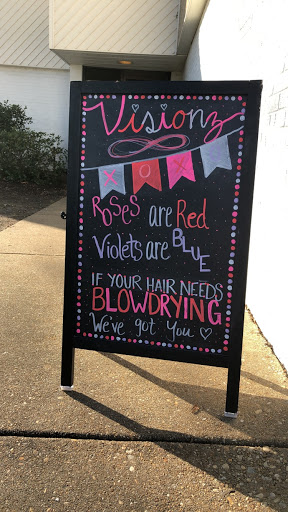 Visionz
XOXO
Roses are Red
Violets are BLUE
IF YOUR HAIR NEEDS
BLOWDRYING
We've got You ♡